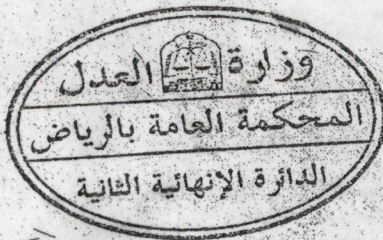 وزارة العدل
المحكمة العامة بالرياض
الدائرة الإنهائية الثانية